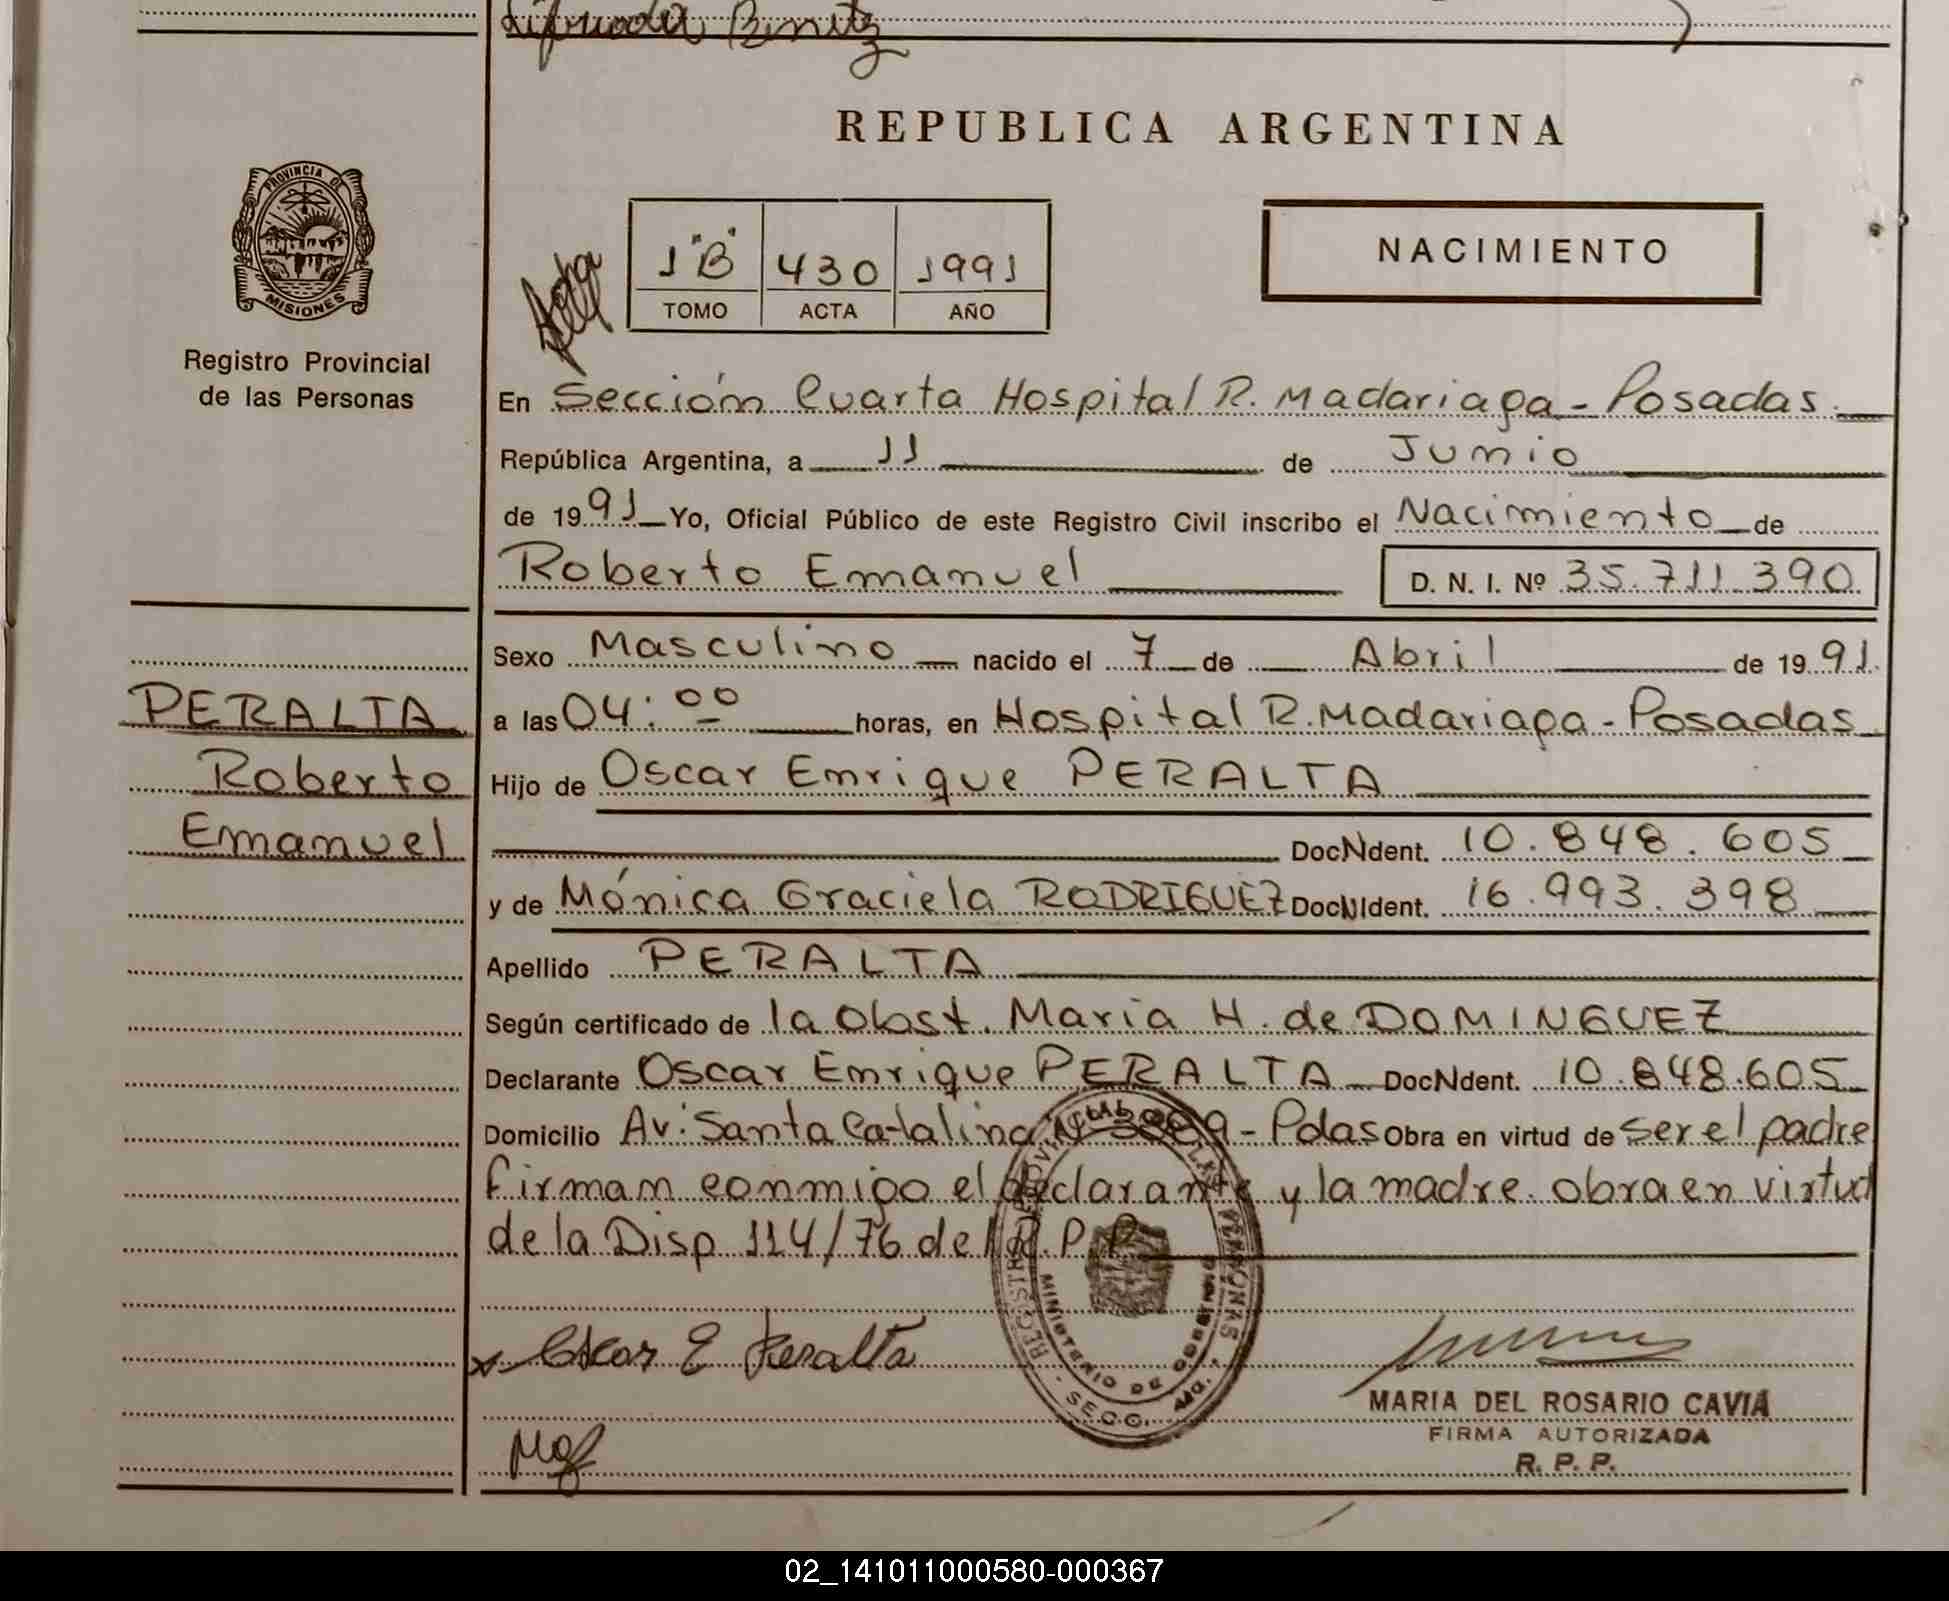 Benitz
REPUBLICA ARGENTINA
PROVINCIA DE
MISIONES
Registro Provincial
de las Personas
1 "B" 430 1991
TOMO ACTA AÑO
NACIMIENTO
En Sección Cuarta Hospital R. Madariaga - Posadas.
República Argentina, a 11 de Junio
de 1991 Yo, Oficial Público de este Registro Civil inscribo el Nacimiento de
Roberto Emanuel D. N. I. Nº 35.711.390
Sexo Masculino nacido el 7 de Abril de 1991
PERALTA
Roberto
Emanuel
a las 04:00 horas, en Hospital R. Madariaga - Posadas
Hijo de Oscar Enrique PERALTA
DocNIdent. 10.848.605
y de Mónica Graciela RODRIGUEZ DocNIdent. 16.993.398
Apellido PERALTA
Según certificado de la Obst. Maria H. de DOMINGUEZ
Declarante Oscar Enrique PERALTA DocNIdent. 10.848.605
Domicilio Av. Santa Catalina - Pdas Obra en virtud de ser el padre
firman conmigo el declarante y la madre. obra en virtud
de la Disp 114/76 del R.P.P.
Oscar E Peralta
MINISTERIO DE GOBIERNO
MARIA DEL ROSARIO CAVIA
FIRMA AUTORIZADA
R. P. P.
02_141011000580-000367